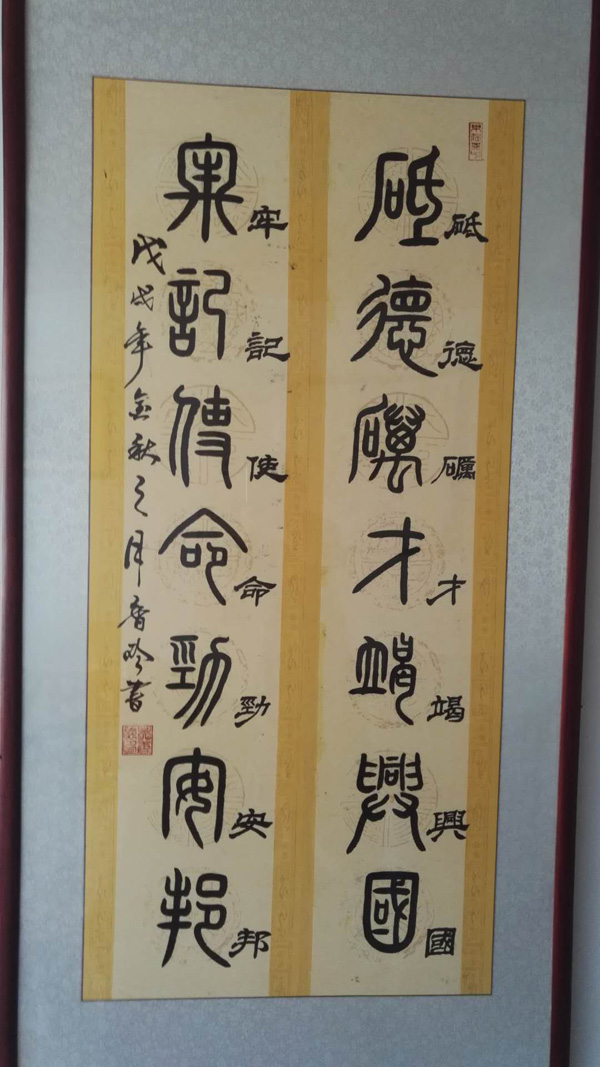 砥德礪才竭興國
砥德礪才竭興國
牢記使命勁安邦
牢記使命勁安邦
戊戌年金秋之月唐吟書